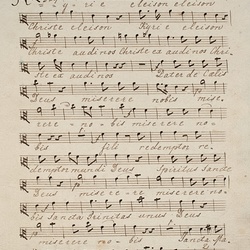 K y r i e eleison eleison
Christe eleison Kyrie eleison
Christe audi nos Christe ex audi nos Chri
ste ex audi nos Pater de Cœlis
Deus miserere nobis mise
rere nobis miserere no
bis fili redemptor re
demptor mundi Deus Spiritus Sancte
Deus miserere miserere no
bis Sancta Trinitas unus Deus
miserere nobis Sancta